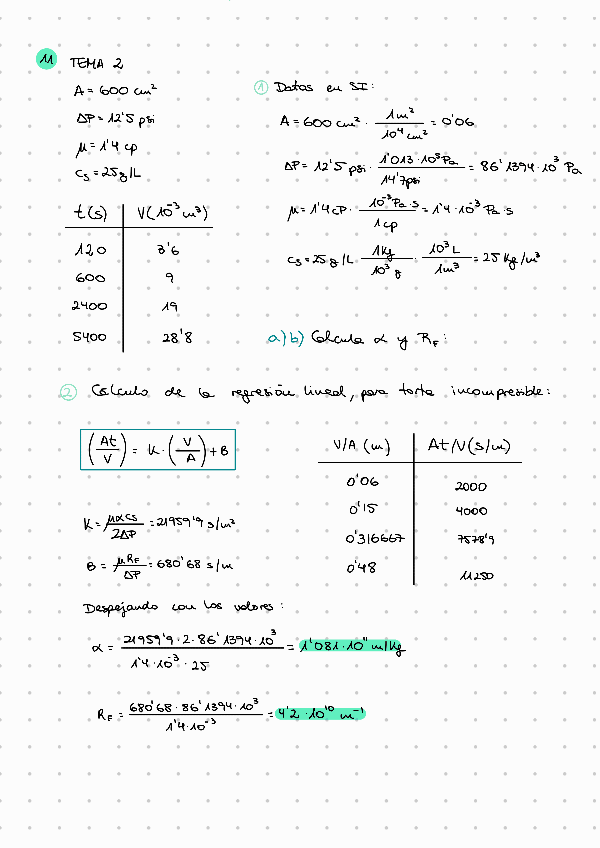 11 TEMA 2
A = 600 cm²
ΔP = 12'5 psi
μ = 1'4 cp
Cs = 25 g/L
t(s) V(10⁻³ m³)
120 3'6
600 9
2400 19
5400 28'8
① Datos en SI:
A = 600 cm² · 1m²/10⁴ cm² = 0'06
ΔP = 12'5 psi · 1'013·10⁵Pa/14'7psi = 86'1394·10³ Pa
μ = 1'4 cP · 10⁻³Pa·s/1cp = 1'4·10⁻³ Pa·s
Cs = 25 g/L · 1Kg/10³ g · 10³ L/1m³ = 25 Kg/m³
a)b) Calcula α y RF:
② Cálculo de la regresión lineal, para torta incompresible:
(At/V) = K·(V/A) + B
V/A (m) At/V (s/m)
0'06 2000
0'15 4000
0'316667 7578'9
0'48 11250
K = μαCs/2ΔP = 21959'9 s/m²
B = μRF/ΔP = 680'68 s/m
Despejando con los valores:
α = 21959'9·2·86'1394·10³/1'4·10⁻³·25 = 1'081·10¹¹ m/kg
RF = 680'68·86'1394·10³/1'4·10⁻³ = 4'2·10¹⁰ m⁻¹